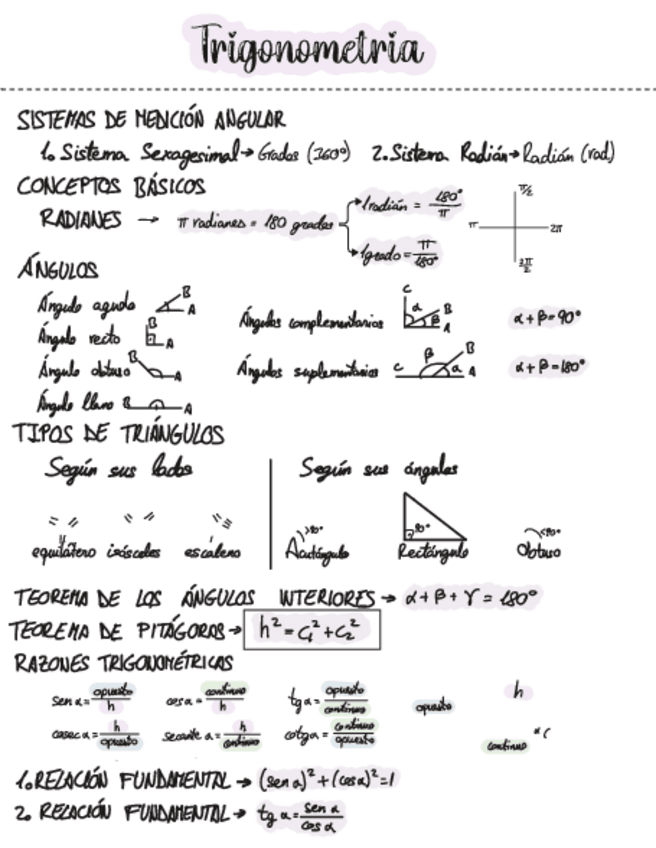 Trigonometria
SISTEMAS DE MEDICIÓN ANGULAR
1. Sistema Sexagesimal → Grados (360°) 2. Sistema Radián → Radián (rad)
CONCEPTOS BÁSICOS
RADIANES → π radianes = 180 grados
1radián = 180°/π
1grado = π/180°
π/2
π 2π
3π/2
ÁNGULOS
Ángulo agudo B A
Ángulo recto B A
Ángulo obtuso B A
Ángulo llano B A
Ángulos complementarios C α B β A α + β = 90°
Ángulos suplementarios C β B α A α + β = 180°
TIPOS DE TRIÁNGULOS
Según sus lados
equilátero isósceles escaleno
Según sus ángulos
Acutángulo Rectángulo 90° Obtuso
TEOREMA DE LOS ÁNGULOS INTERIORES → α + β + γ = 180°
TEOREMA DE PITÁGORAS → h² = c₁² + c₂²
RAZONES TRIGONOMÉTRICAS
sen α = opuesto/h cos α = continuo/h tg α = opuesto/continuo opuesto h
cosec α = h/opuesto secante α = h/continuo cotg α = continuo/opuesto continuo
1. RELACIÓN FUNDAMENTAL → (sen α)² + (cos α)² = 1
2. RELACIÓN FUNDAMENTAL → tg α = sen α/cos α